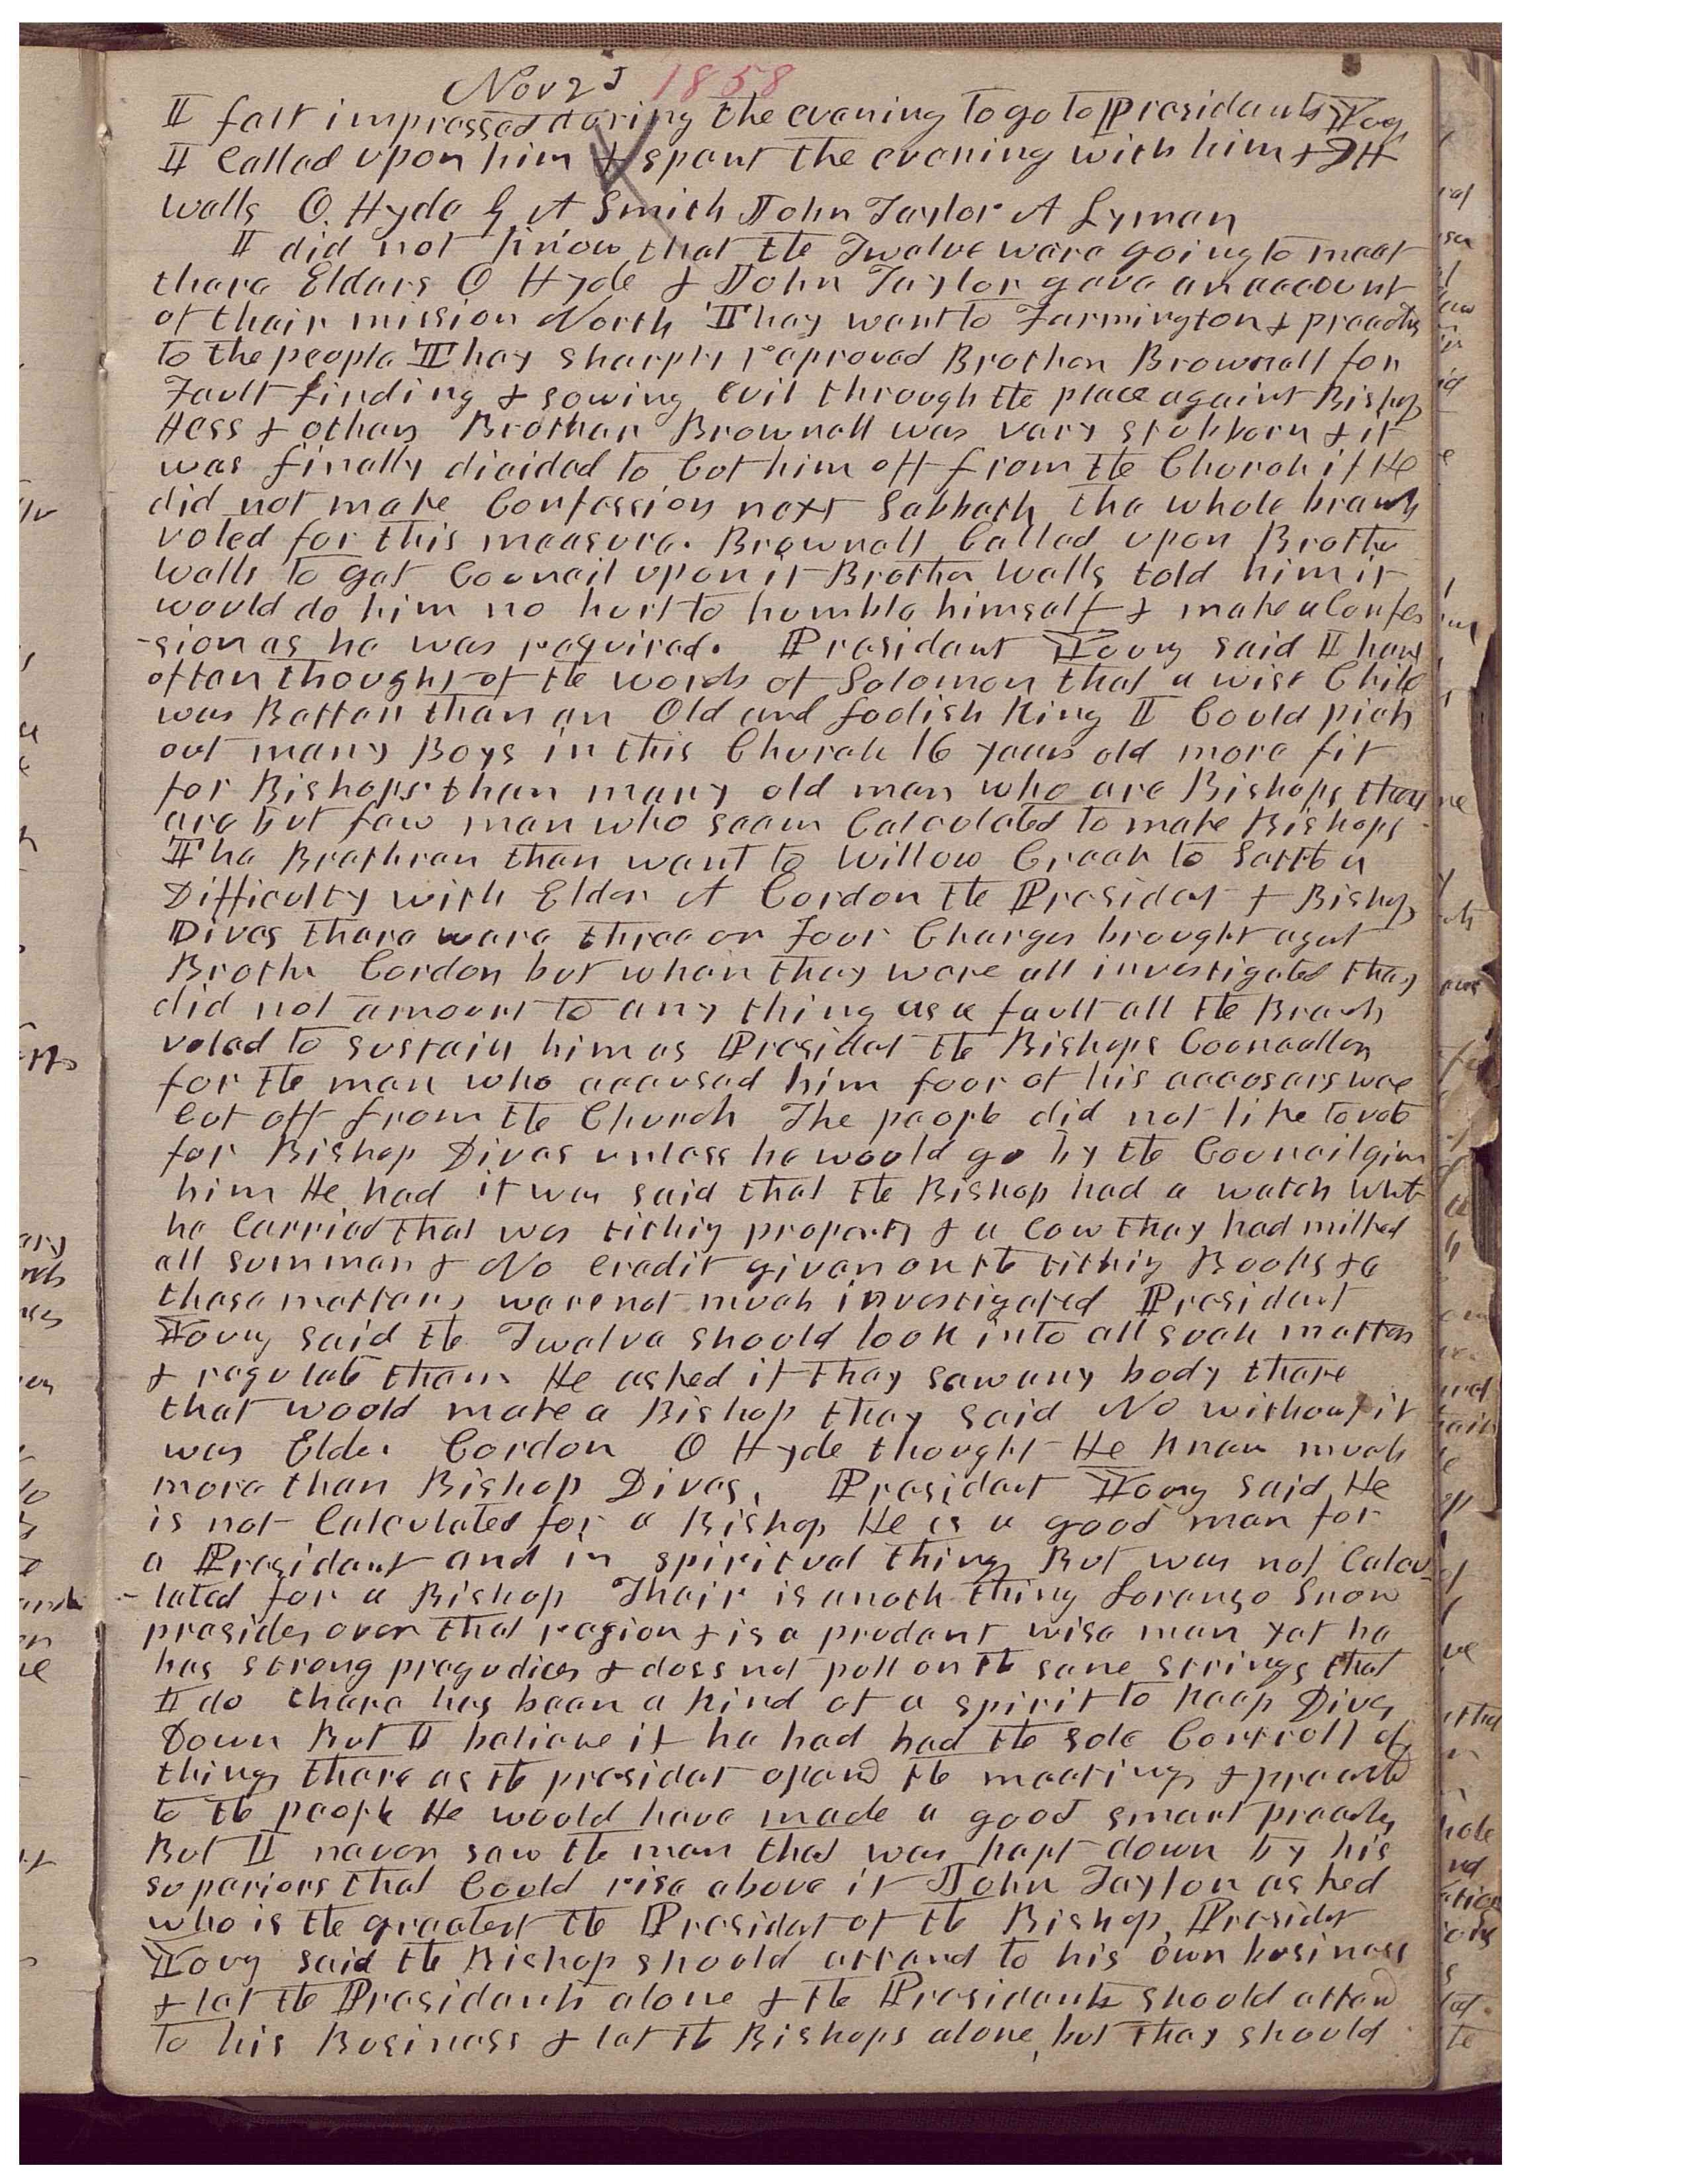 Nov 2d 1858
I felt impressed during the evening to go to Presidents Yog
I Called upon him & spent the evening with him & D H
Wells O. Hyde G A Smith John Taylor A Lyman
I did not know that the Twelve were going to meet
there Elders O Hyde & John Taylor gave an account
of their mission North They went to Farmington & preachd
to the people They sharply reproved Brother Brownell for
Fault finding & sowing evil through the place against Bishop
Hess & others Brother Brownell was very stubborn & it
was finally dicided to Cut him off from the Church if He
did not make Confession next Sabbath the whole branch
voted for this measure. Brownell Called upon Brother
Wells to get Council upon it Brother Wells told him it
would do him no hurt to humble himself & make a Confes
-sion as he was required. President Young said I have
often thought of the words of Solomon that a wise Child
was Better than an Old and foolish King I Could pick
out many Boys in this Church 16 years old more fit
for Bishops than many old men who are Bishops there
are but few men who seem Calculated to make Bishops
The Brethren then went to Willow Creek to Settle a
Difficulty with Elder A Cordon the President & Bishop
Dives there were three or Four Charges brought agast
Brother Cordon but when they were all investigated they
did not amount to any thing as a fault all the Branch
voted to sustain him as Presidet the Bishops Councellor
for the man who accused him four of his accusers wee
Cut off from the Church The people did not like to vote
for Bishop Dives unless he would go by the Council givn
him He had it was said that the Bishop had a watch which
he Carried that was tithing property & a Cow they had milked
all summer & No Credit given on the tithing Books &c
these matters were not much investigated President
Young said the Twelve should look into all such matters
& regulate them He asked if they saw any body there
that would make a Bishop they said No without it
was Elder Cordon O Hyde thought He knew much
more than Bishop Dives. President Young said He
is not Calculated for a Bishop He is a good man for
a President and in spiritual things But was not Calcu
-lated for a Bishop Their is anoth thing Lorenzo Snow
presides over that region & is a prudent wise man yet he
has strong pregudices & does not pull on the same strings that
I do there has been a kind of a spirit to keep Dives
Down But I believe if he had had the sole Controll of
things there as the presidet opend the meetings & preached
to the people He would have made a good smart preacher
But I never saw the man that was kept down by his
superiors that Could rise above it John Taylor asked
who is the greatest the Presidet or the Bishop, Presidet
Young said the Bishop should attend to his own business
& let the Presidents alone & the Presidents should attend
to his Business & let the Bishops alone, but they should